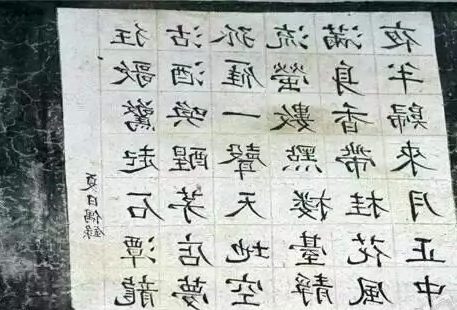 夜半歸來月正中
滿身香帶桂花風
流螢數點樓臺靜
孤雁一聲天地空
沽酒喚醒茅店夢
狂歌驚起石潭龍
夏日偶錄